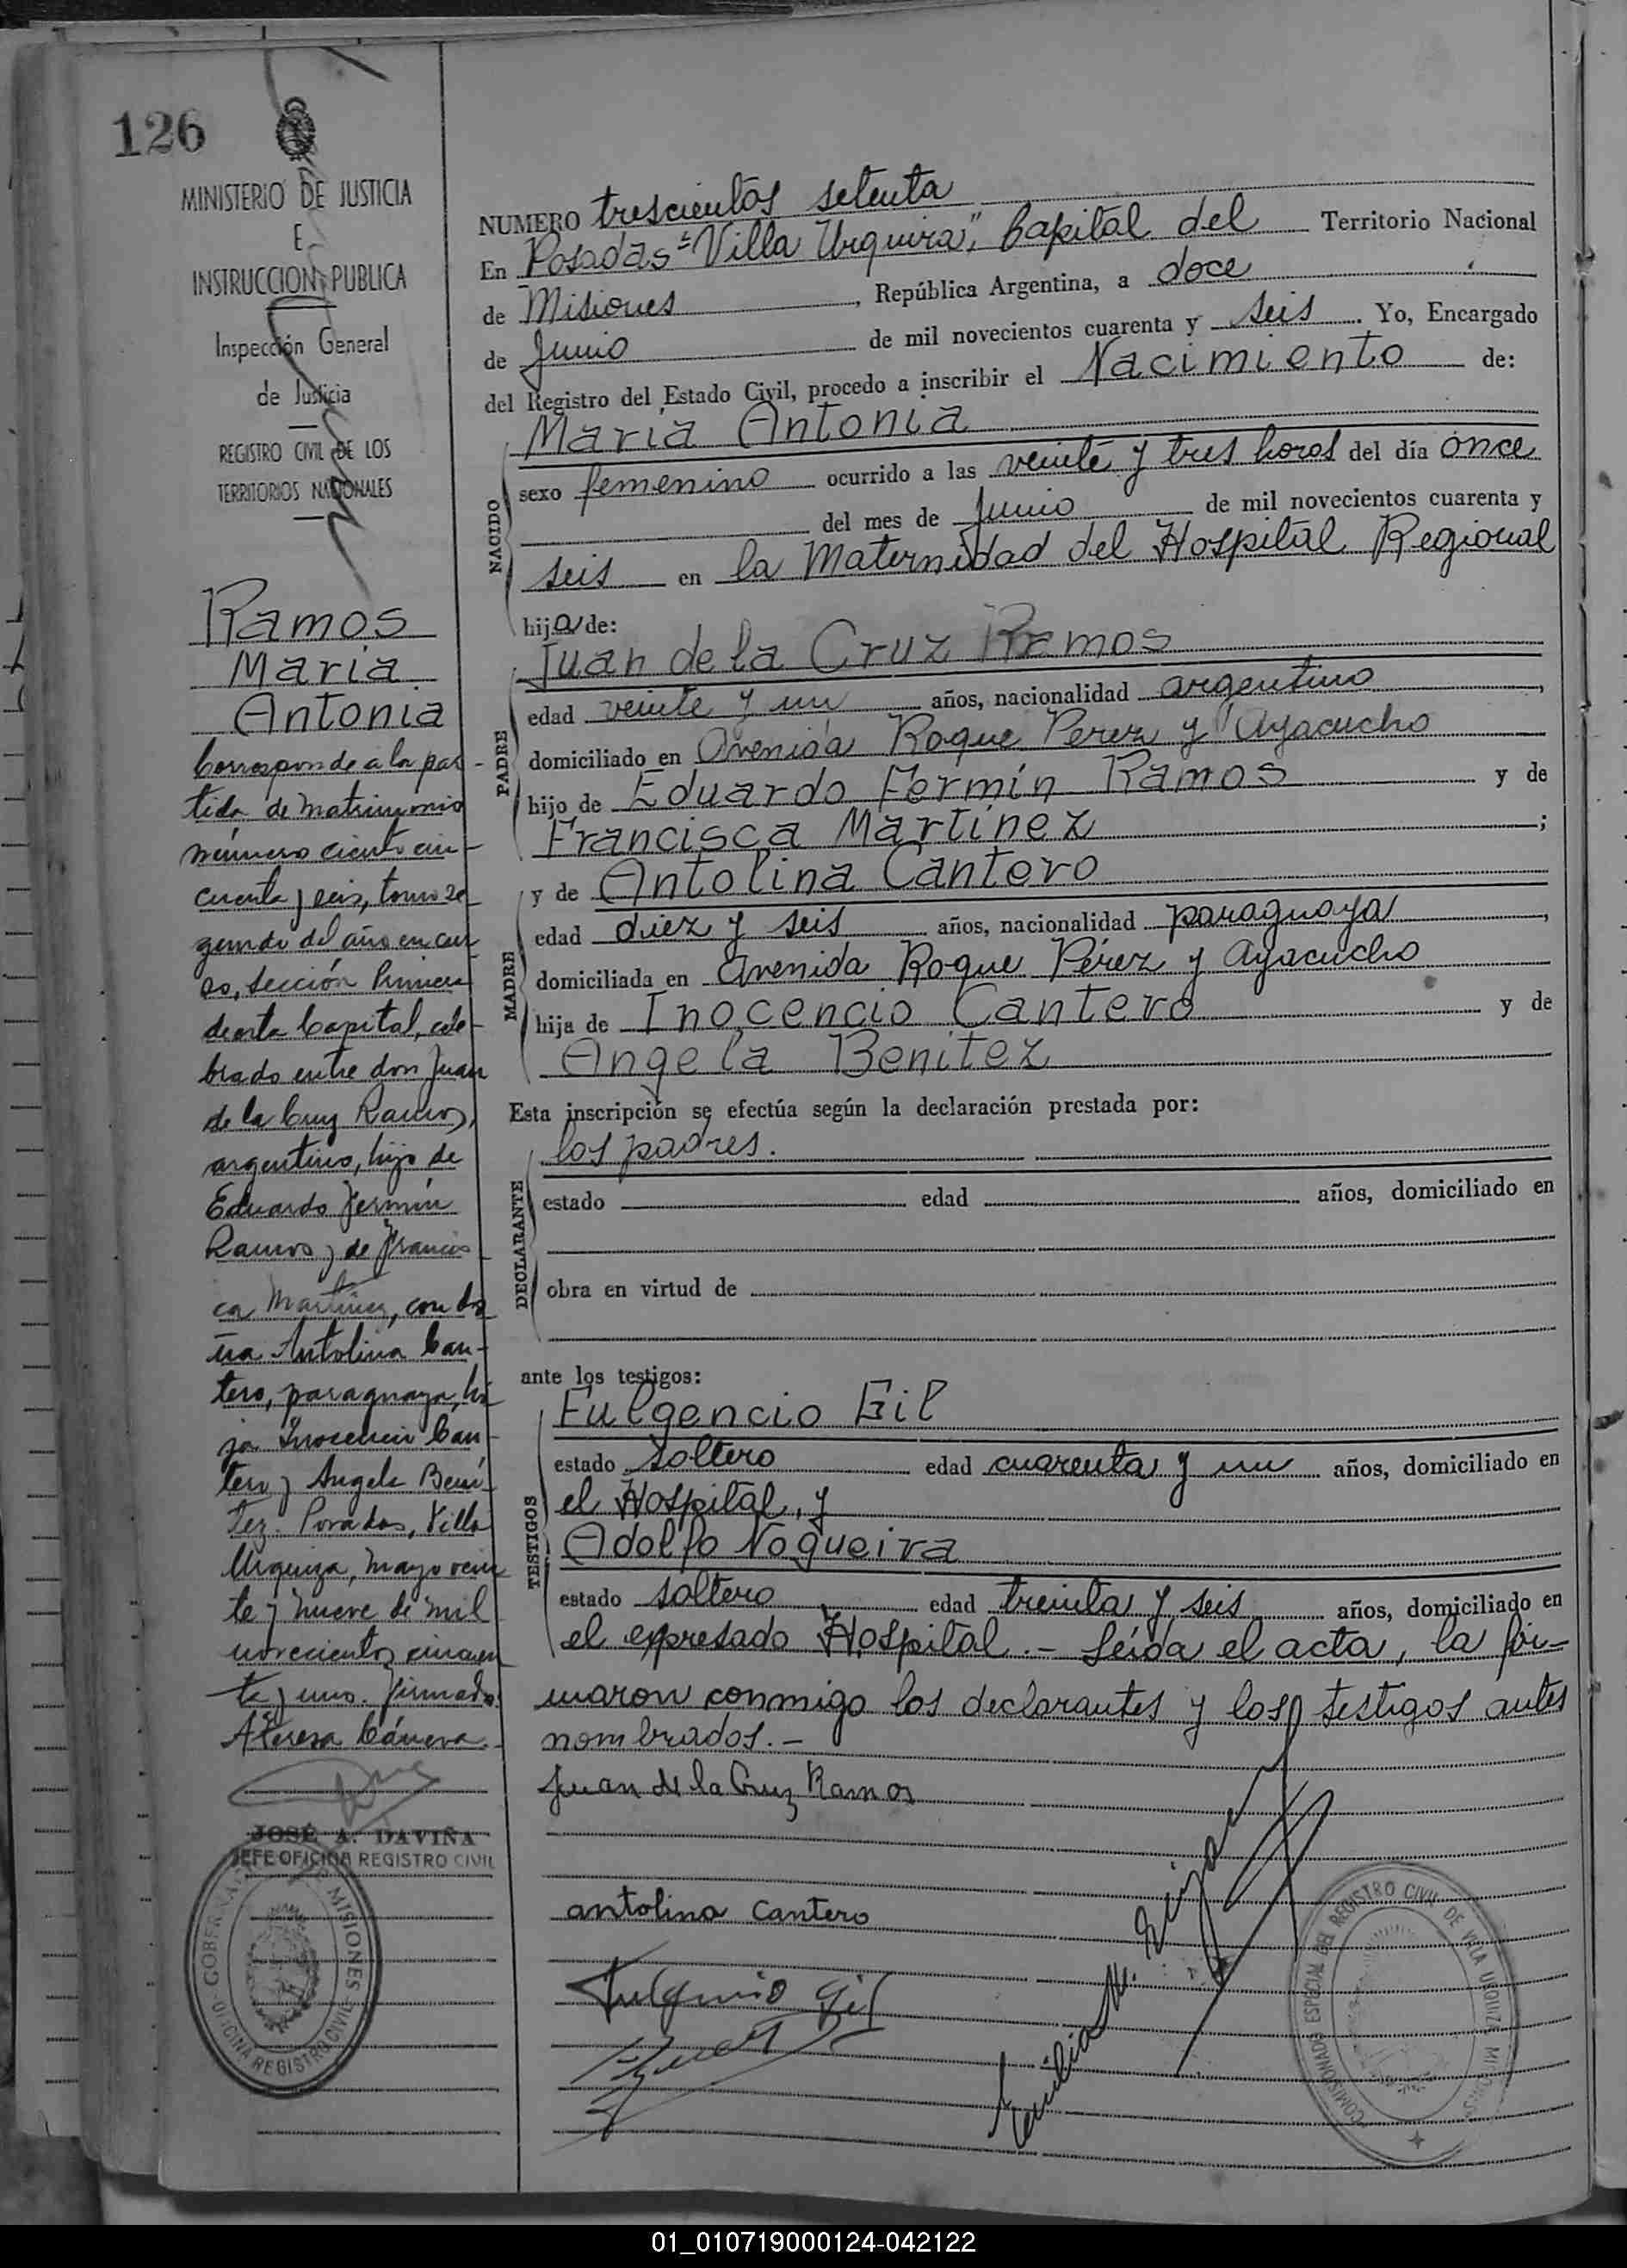 126
MINISTERIO DE JUSTICIA
E
INSTRUCCION PUBLICA
Inspección General
de Justicia
REGISTRO CIVIL DE LOS
TERRITORIOS NACIONALES
Ramos
Maria
Antonia
Corresponde a la par-
tida de matrimonio
número ciento cin-
cuenta y seis, tomo se
gundo del año en cur
so, sección Primera
de esta Capital, cele-
brado entre don Juan
de la Cruz Ramos,
argentino, hijo de
Eduardo Fermín
Ramos y de Francis
ca Martínez, con do
ña Antolina Can-
tero, paraguaya, hi
ja Inocencio Can-
tero y Angela Bení-
tez. Posadas, Villa
Urquiza, mayo vein
te y nueve de mil
novecientos cincuen
ta y uno. Firmado.
JOSÉ A. DAVIÑA
JEFE OFICINA REGISTRO CIVIL
MISIONES
OFICINA REGISTRO CIVIL
NUMERO trescientos setenta
En Posadas "Villa Urquiza", Capital del Territorio Nacional
de Misiones, República Argentina, a doce
de Junio de mil novecientos cuarenta y seis. Yo, Encargado
del Registro del Estado Civil, procedo a inscribir el Nacimiento de:
NACIDO
Maria Antonia
sexo femenino ocurrido a las veinte y tres horas del día once
del mes de Junio de mil novecientos cuarenta y
seis en la Maternidad del Hospital Regional
hija de:
PADRE
Juan de la Cruz Ramos
edad veinte y un años, nacionalidad argentino,
domiciliado en Avenida Roque Perez y Ayacucho
hijo de Eduardo Fermín Ramos y de
Francisca Martínez;
MADRE
y de Antolina Cantero
edad diez y seis años, nacionalidad paraguaya,
domiciliada en Avenida Roque Pérez y Ayacucho
hija de Inocencio Cantero y de
Angela Benitez
Esta inscripción se efectúa según la declaración prestada por:
DECLARANTE
los padres.
estado edad años, domiciliado en
obra en virtud de
ante los testigos:
TESTIGOS
Fulgencio Gil
estado soltero edad cuarenta y un años, domiciliado en
el Hospital, y
Adolfo Nogueira
estado soltero edad treinta y seis años, domiciliado en
el expresado Hospital.- Leída el acta, la fir-
maron conmigo los declarantes y los testigos antes
nombrados.-
Juan de la Cruz Ramos
antolina Cantero
Fulgencio Gil
Emilia M.
COMISIONADO ESPECIAL DEL REGISTRO CIVIL DE VILLA URQUIZA MISIONES
01_010719000124-042122